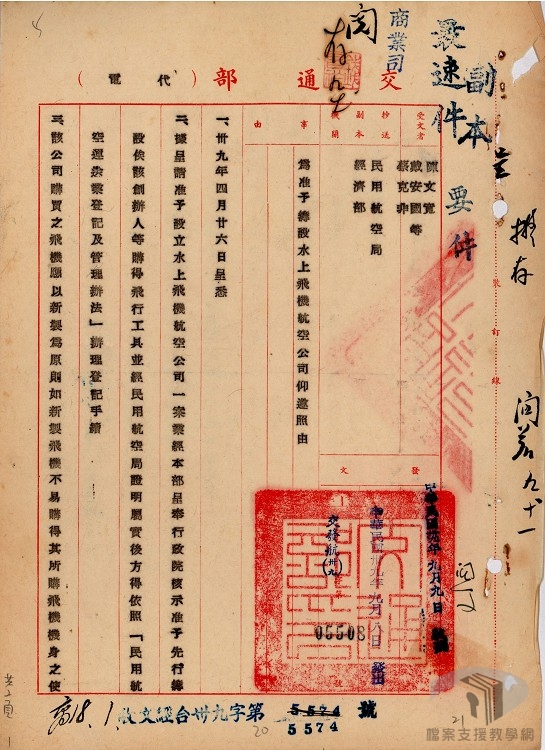 副本
最速件
要件
商業司
閱
存
交通部（代電）
受文者
陳文寬
戴安國等
蔡克非
抄送
副本
機關
民用航空局
經濟部
事由
為准予籌設水上飛機航空公司仰遵照由
發文
中華民國卅九年九月八日發出
交發航(卅九)
05508
九月九日
一、卅九年四月廿六日呈悉
二、據呈請准予設立水上飛機航空公司一案業經本部呈奉行政院核示准予先行籌
設俟該創辦人等購得飛行工具並經民用航空局證明屬實後方得依照「民用航
空運送業登記及管理辦法」辦理登記手續
三、該公司購買之飛機應以新製為原則如新製飛機不易購得其所購飛機機身之使
裝訂線
擬存
九十一
收文經台卅九字第 5574 號
5574
20
21
共2頁
檔案支援教學網